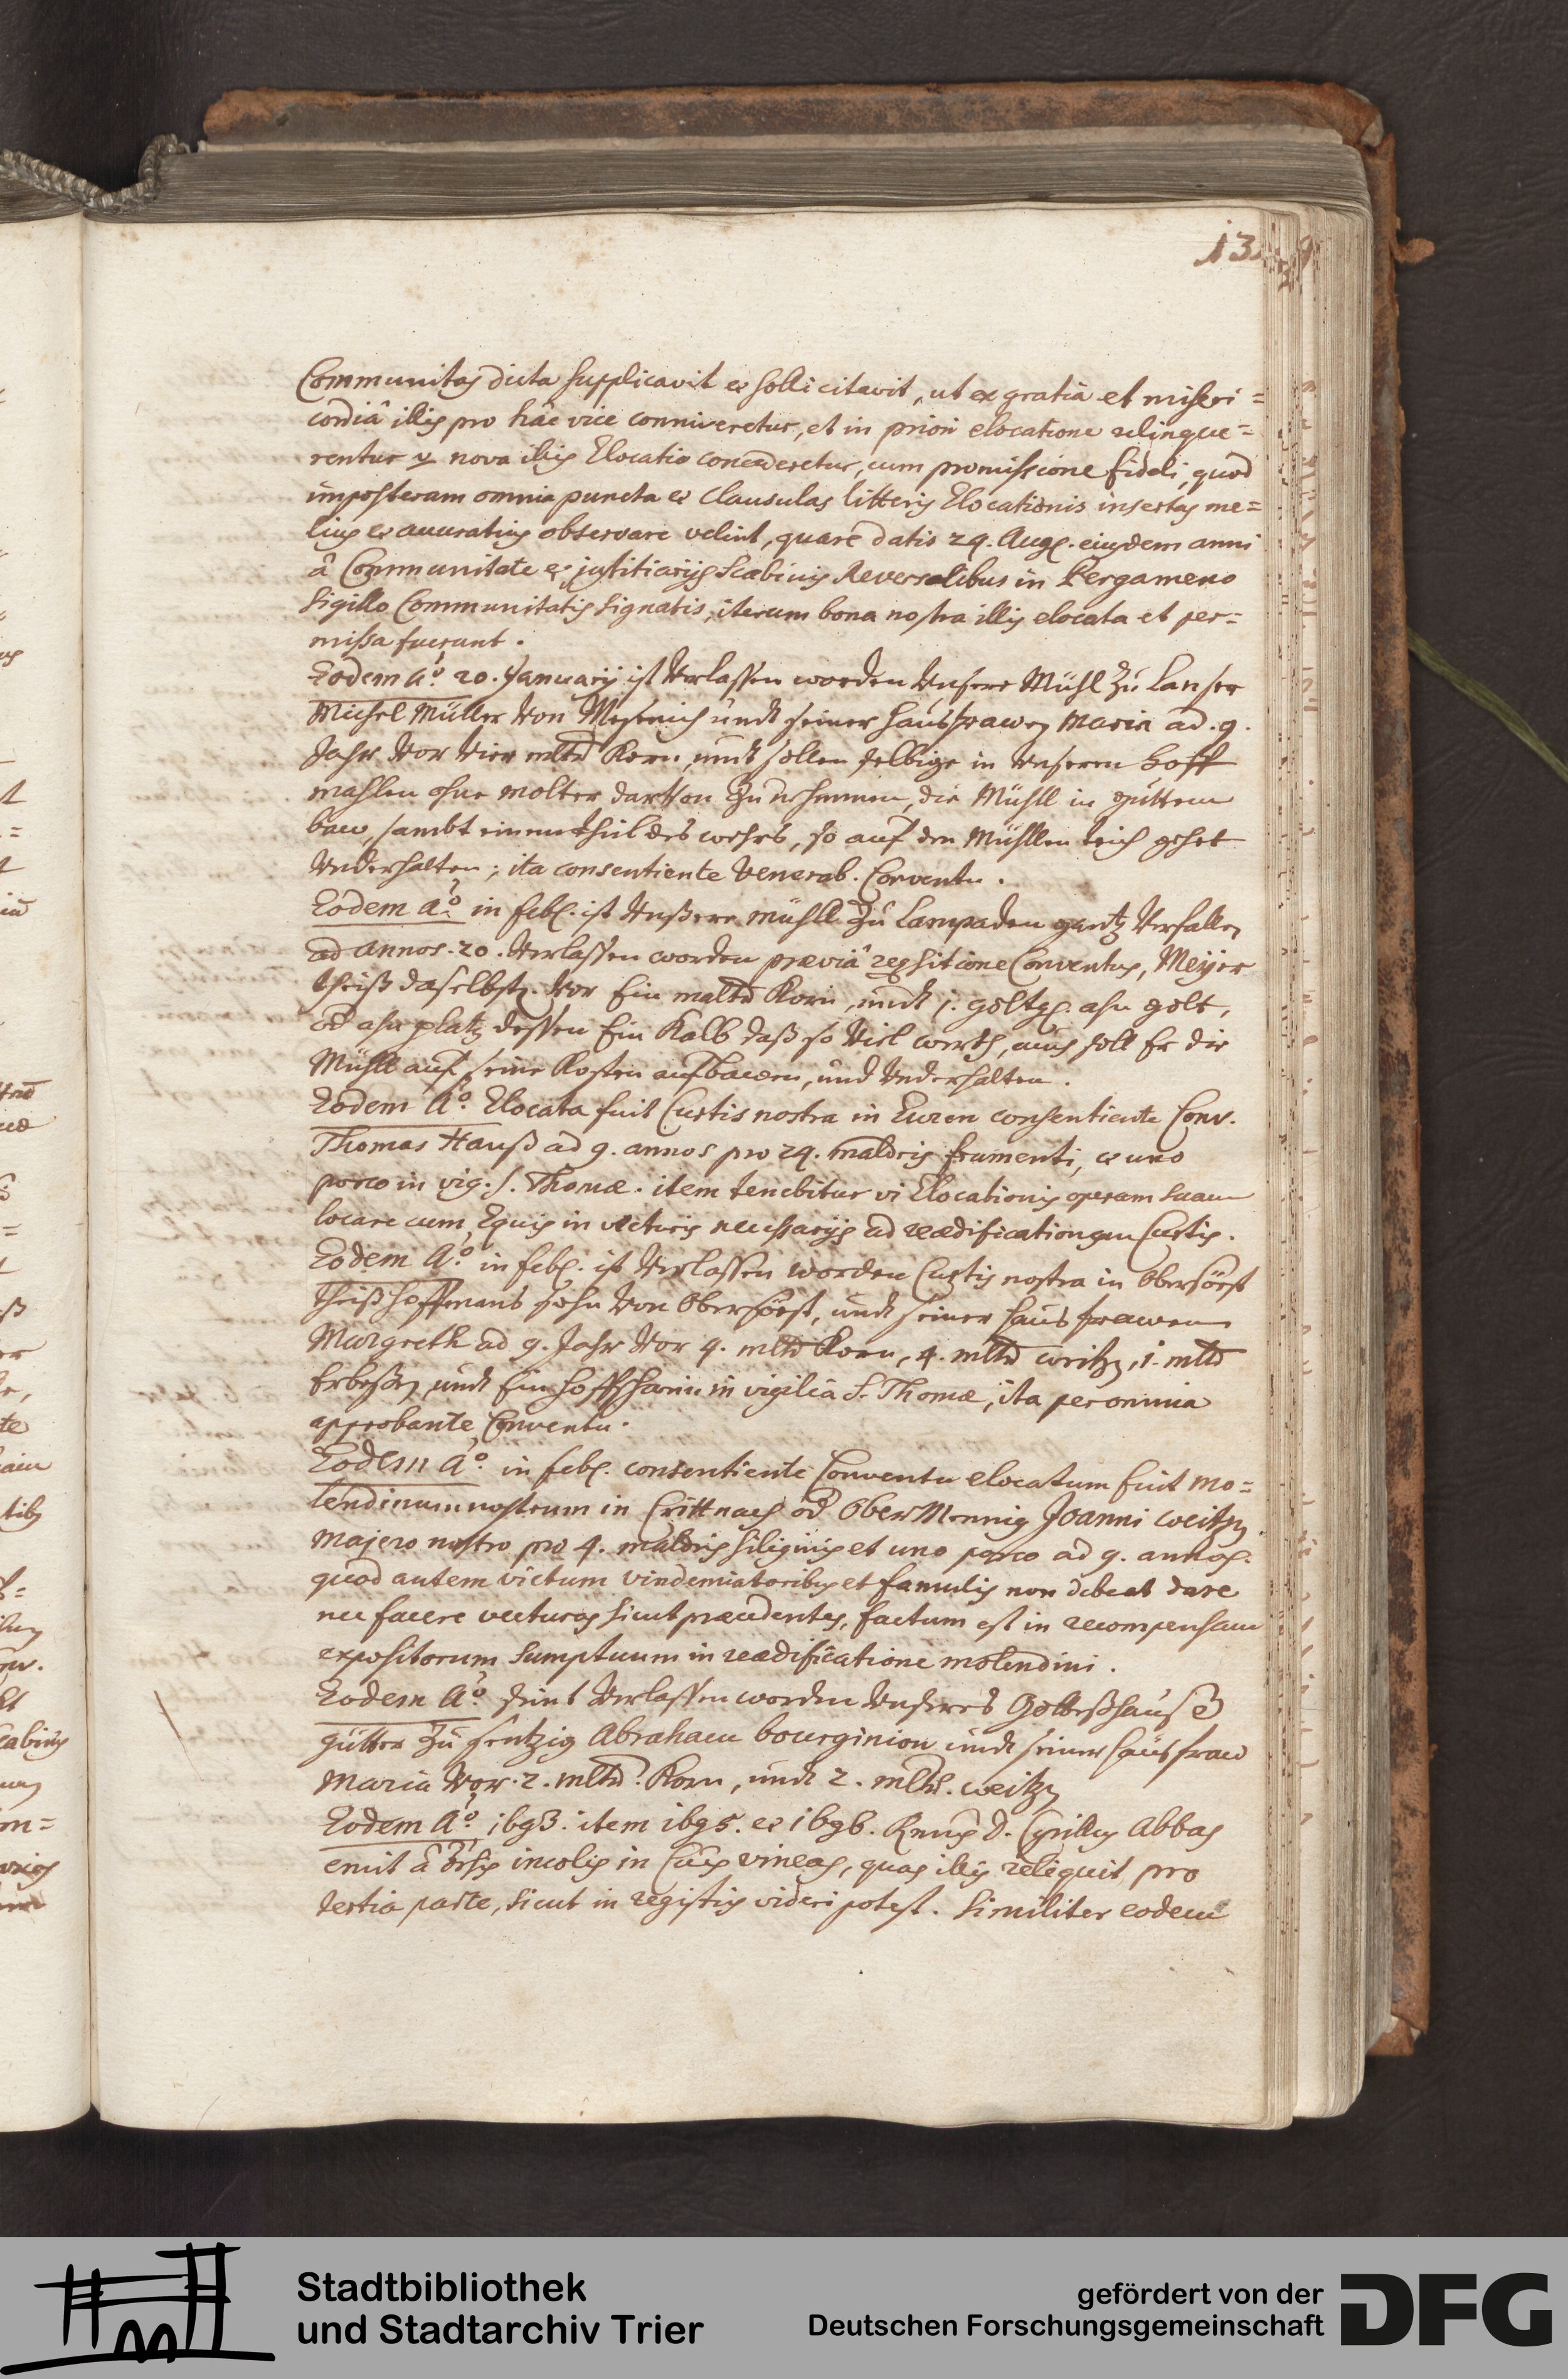 13
Communitas dicta supplicavit et sollicitavit, ut ex gratiâ et miseri=
cordiâ illis pro hâc vice conniveretur, et in priori elocatione relinque=
rentur, nova illis Elocatio concederetur, cum promissione fideli, quod
imposteram omnia puncta et clausulas litteris Elocationis insertas me=
lius et accuratius observare velint, quare datis 29. Aug. eiusdem anni
â Communitate et justitiarijs Scabinis Reversalibus in Pergameno
Sigillo Communitatis signatis, iterum bona nostra illis elocata et per=
missa fuerunt.
Eodem Aº. 20. Januarij ist verlassen worden unsere Mühl zu Lanser
Michel Müller von Mesenich undt seiner hausfrawen Maria ad. 9.
Jahr vor vier mltd Korn, undt sollen selbige in unserem hoff
mahlen ohne molter darvon zu nehmen, die Mühll in guttem
baw, sambt einem theil des wehrs, so auf den Mühllen teich gehet
underhalten; ita consentiente Venerab. Conventu.
Eodem aº. in feb. ist unßere mühll zu Lampaden gantz verfallen
ad annos. 20. verlassen worden præviâ Conventus, Meijer
theiß daselbst. vor Ein maltd Korn, undt 1. goltg. ahn gelt,
od ahn platz dessen Ein Kalb daß so viel werth, auch soll Er die
Mühll auf seine Kosten aufbawen, und underhalten.
Eodem Aº. Elocata fuit Curtis nostra in Euren consentiente Conv.
Thomas Hauß ad 9. annos pro 29. maldris frumenti, et uno
porco in vig. S. Thomæ. item tenebitur vi Elocationis operam suam
locare cum Equis in vecturis necessarijs ad reædificationem Curtis.
Eodem Aº. in feb. ist verlassen worden Curtis nostra in Obersörst
theiß hoffmans sohn von Obersörst, undt seiner hausfrawen
Margreth ad 9. Jahr vor 4. mltd Korn, 4. mltd weitz, 1. mltd
Erbeßen, undt Ein hoffschwein in vigilia S. Thomæ, ita per omnia
approbante Conventu.
Eodem Aº. in feb. consentiente Conventu elocatum fuit mo=
lendinum nostrum in Crittnach od Ober Mennig Joanni weitzen
majero nostro pro 4. maldris siliginis et uno porco ad 9. annos.
quod autem victum vindemiatoribus et famulis non debeat dare
nec facere vecturas sicut præcedentes, factum est in recompensam
expositorum sumptuum in reædificatione molendini.
Eodem Aº. seint verlassen worden unseres Gotteßhauses
gütter zu sentzig Abraham bourginion undt seiner hausfraw
Maria vor. 2. mltd. Korn, undt 2. mltd. weitzen
Eodem Aº. 1693. item 1695. et 1696. Rmus D. Cyrillus Abbas
emit â incolis in vineas, quas illis reliquit pro
tertia parte, sicut in registris videri potest. Similiter eodem
Stadtbibliothek
und Stadtarchiv Trier
gefördert von der
Deutschen Forschungsgemeinschaft
DFG